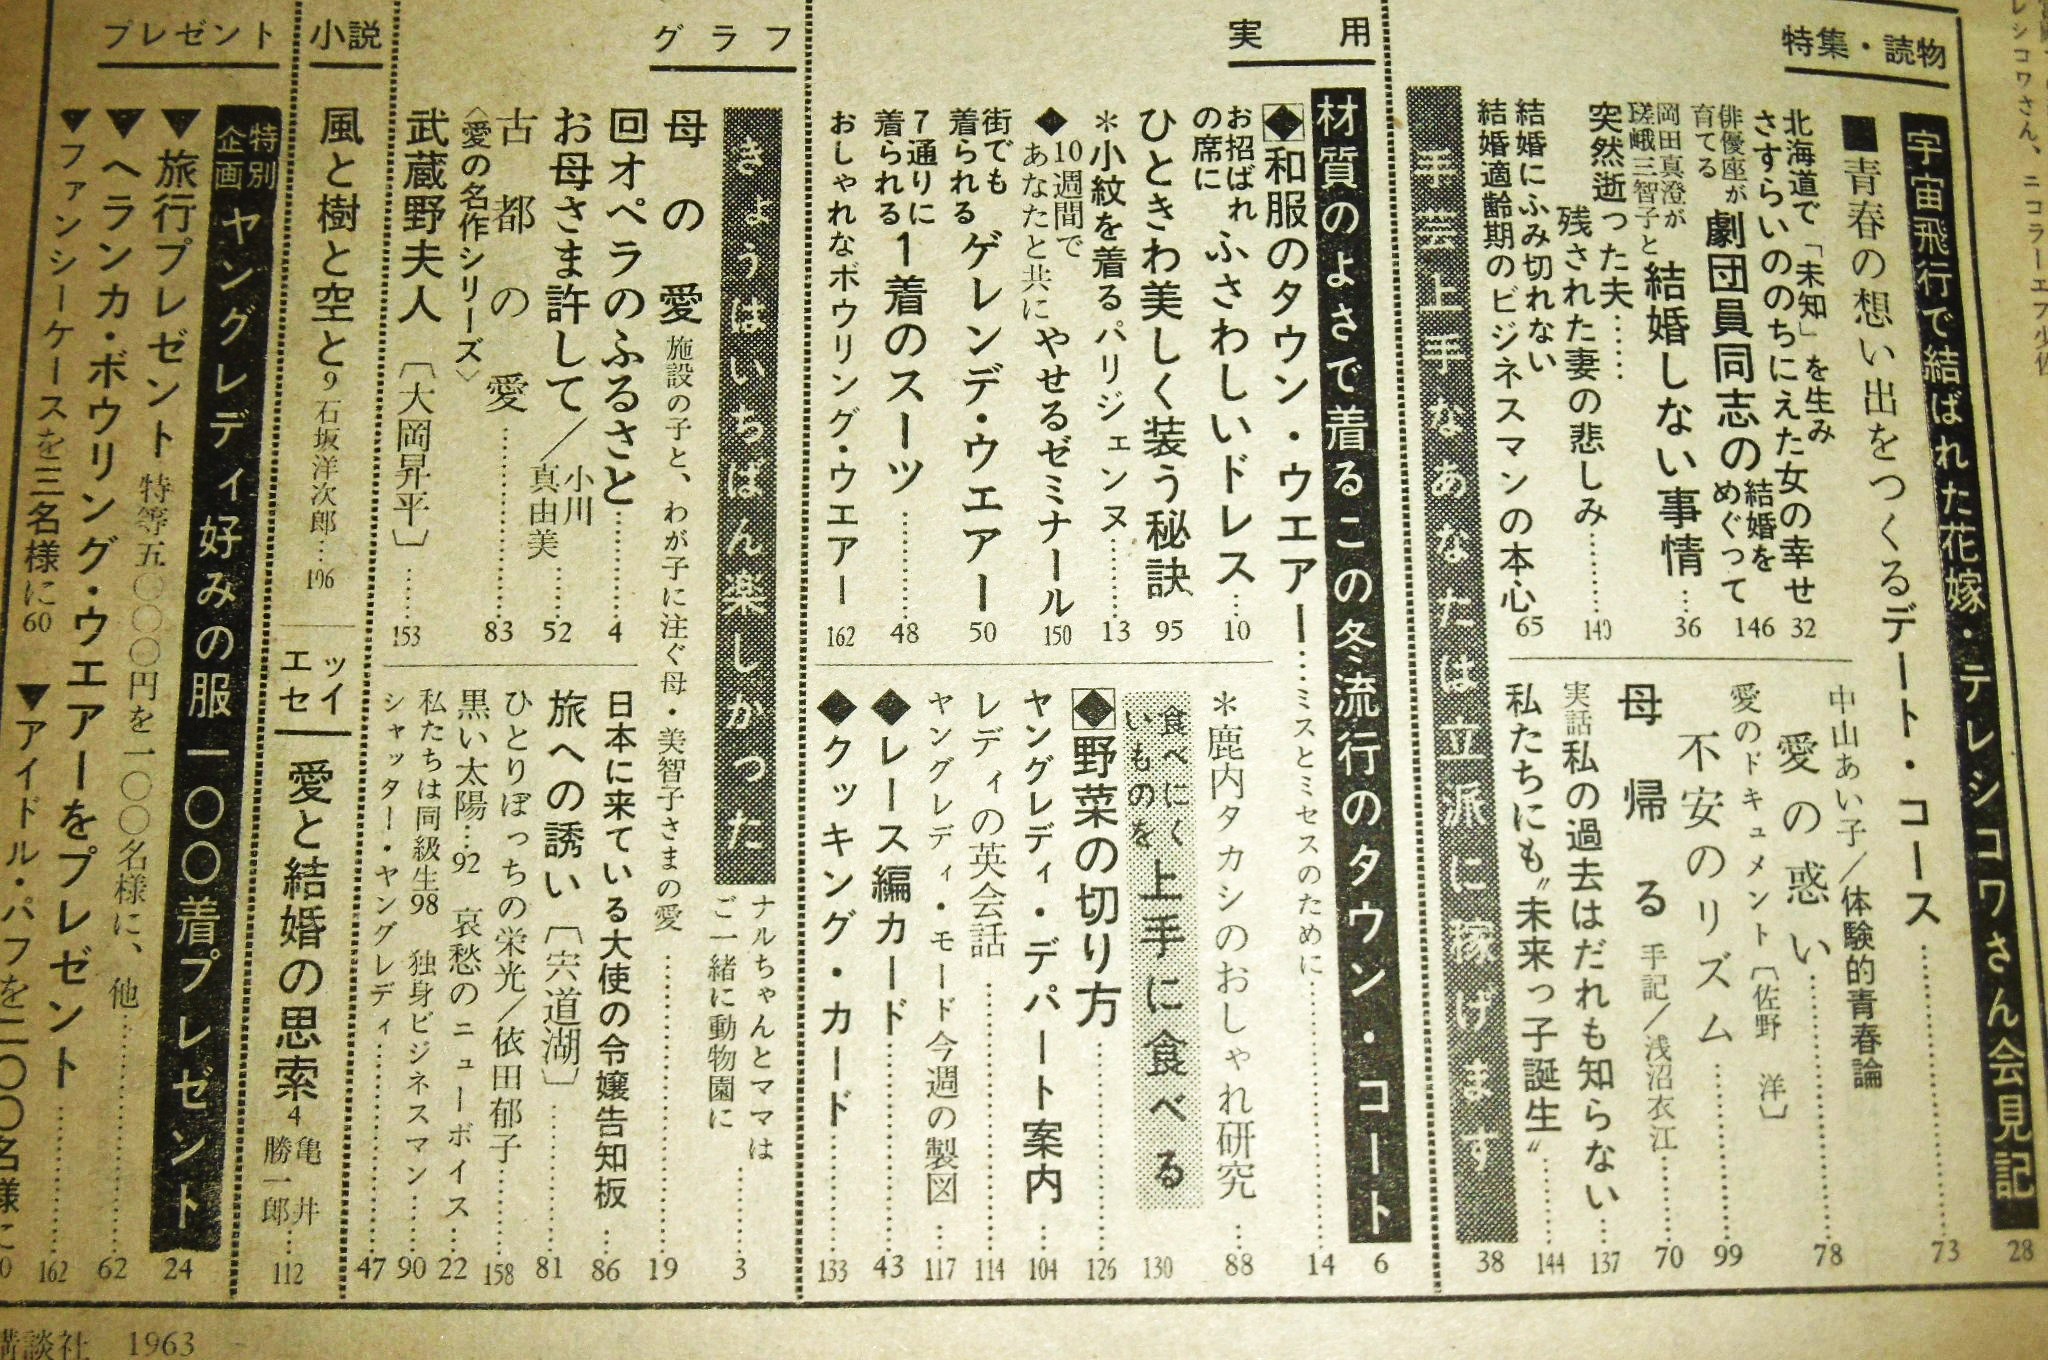 特集・読物
宇宙飛行で結ばれた花嫁・テレシコワさん会見記 28
■青春の想い出をつくるデート・コース……73
北海道で「未知」を生み
さすらいののちにえた女の幸せ 32
俳優座が育てる劇団員同志の結婚をめぐって 146
岡田真澄が瑳峨三智子と結婚しない事情…36
突然逝った夫……
残された妻の悲しみ……140
結婚にふみ切れない
結婚適齢期のビジネスマンの本心 65
中山あい子／体験的青春論
愛の惑い……78
愛のドキュメント〔佐野 洋〕
不安のリズム……99
母帰る 手記／浅沼衣江……70
実話 私の過去はだれも知らない…137
私たちにも〝未来っ子誕生〟……144
手芸上手なあなたは立派に嫁げます 38
実用
材質のよさで着るこの冬流行のタウン・コート 6
◆和服のタウン・ウエアー…ミスとミセスのために……14
お招ばれの席にふさわしいドレス…10
ひときわ美しく装う秘訣 95
＊小紋を着るパリジェンヌ……13
◆10週間であなたと共にやせるゼミナール 150
街でも着られるゲレンデ・ウエアー 50
7通りに着られる1着のスーツ……48
おしゃれなボウリング・ウエアー 162
＊鹿内タカシのおしゃれ研究…88
食べにくいものを上手に食べる 130
◆野菜の切り方……126
ヤングレディ・デパート案内…104
レディの英会話……114
ヤングレディ・モード今週の製図…117
◆レース編カード……43
◆クッキング・カード……133
グラフ
きょうはいちばん楽しかった ナルちゃんとママはご一緒に動物園に……3
母の愛 施設の子と、わが子に注ぐ母・美智子さまの愛……19
回オペラのふるさと……4
お母さま許して／小川真由美……52
古都の愛……83
〈愛の名作シリーズ〉
武蔵野夫人〔大岡昇平〕……153
日本に来ている大使の令嬢告知板…86
旅への誘い〔宍道湖〕……81
ひとりぼっちの栄光／依田郁子……158
黒い太陽…92 哀愁のニューボイス…22
私たちは同級生98 独身ビジネスマン……90
シャッター・ヤングレディ……47
小説
風と樹と空と9 石坂洋次郎…106
エッセイ
愛と結婚の思索4 亀井勝一郎…112
プレゼント
特別企画 ヤングレディ好みの服一〇〇着プレゼント 24
▼旅行プレゼント 特等五〇〇〇円を一〇〇名様に、他……62
▼ヘランカ・ボウリング・ウエアーをプレゼント……162
▼ファンシーケースを三名様に60 ▼アイドル・パフを二〇〇名様に
講談社 1963